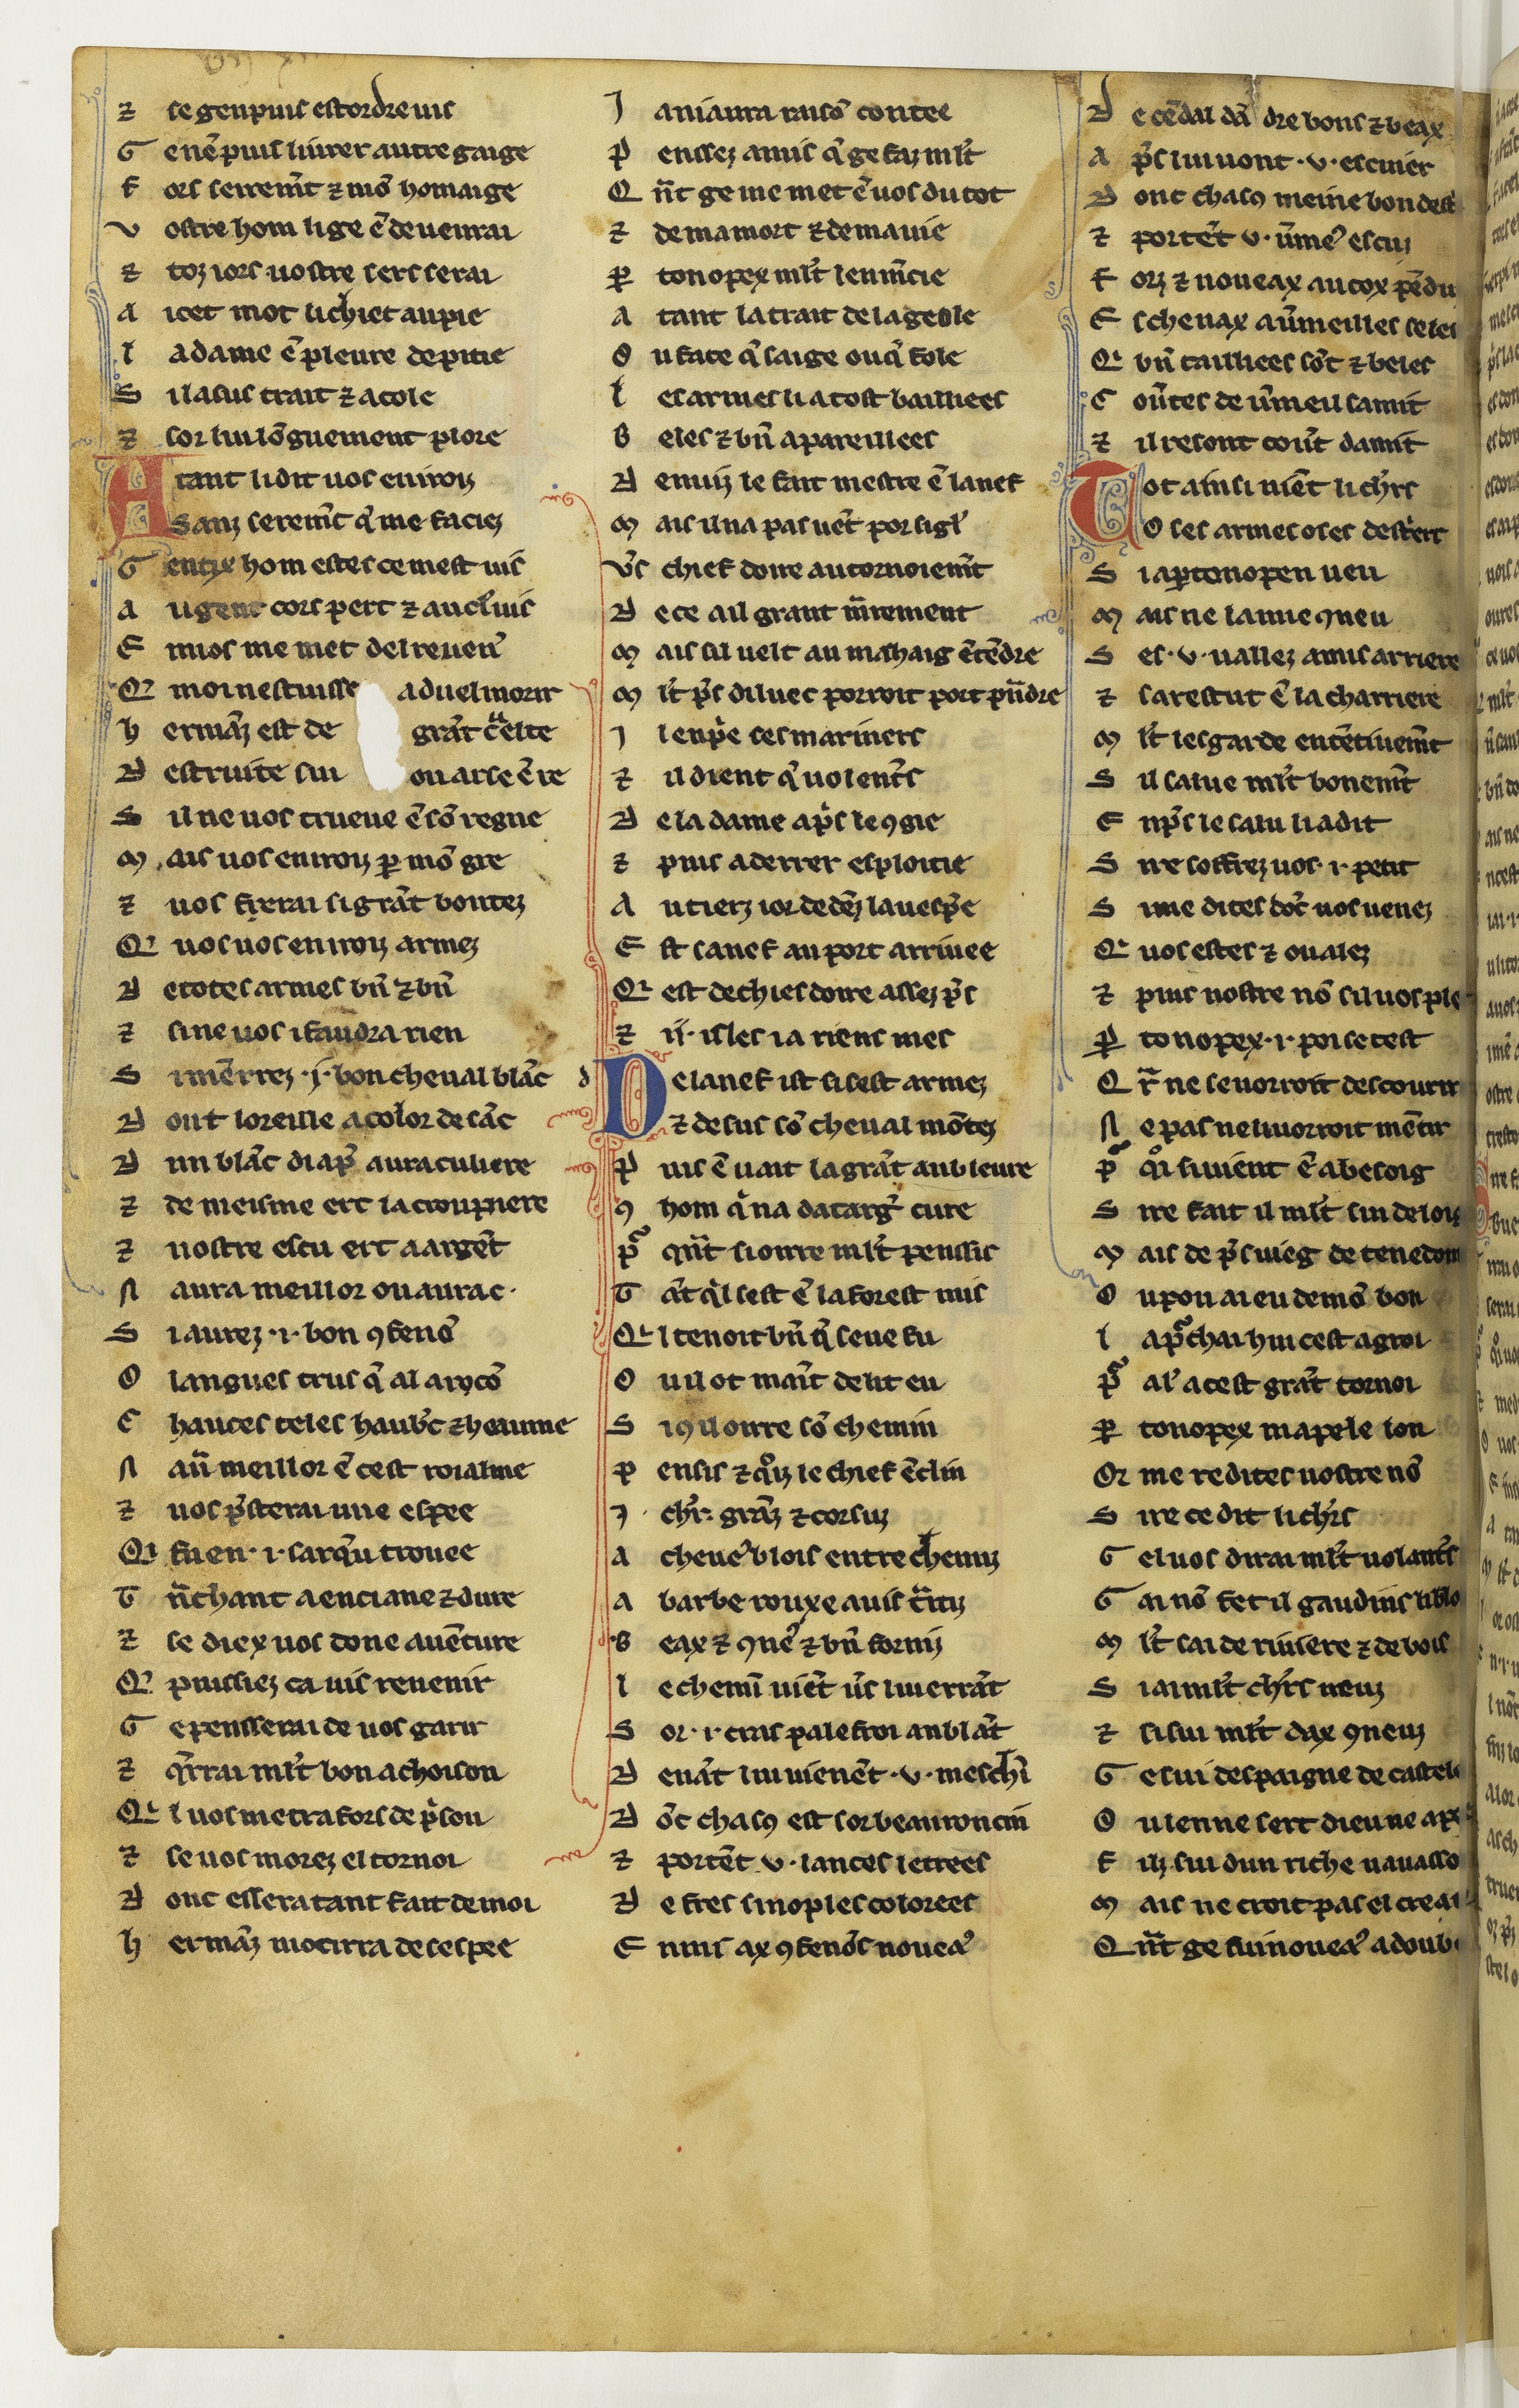 ⁊ se gen puis estordre uis
G e nē puis liurer autre gaige
F ors seiremt̄ ⁊ mō homaige
V ostre hom lige ē deuenrai
⁊ toz iors uostre sers serai
A icet mot li chiet au pie
L a dame ē pleure de pitie
S il a sus trait ⁊ acole
⁊ sor lui lōguement plore
A tant li dit uos en irois
S anz seremt̄ q̄ me faciez
G entix hom estes ce mest uis
A u gent cors pert ⁊ au cler uis
E n uos me met del reuenˀ
Qˀ moi nestuisse a duel morir
H ermāz est de grāt cͣelte
D estruite sui ou arse ē re
S il ne uos trueue ē sō regne
M ais uos en irois ꝑ mō gre
⁊ uos ferai si grāt bontez
Qˀ uos uos en irois armez
D e totes armes bn̄ ⁊ bn̄
⁊ si ne uos i faudra rien
S i mērrez ·i· bon cheual blāc
D ont loreille a color de sāc
D un blāc diapˀ aura culiere
⁊ de meisme ert la croupiere
⁊ uostre escu ert a argēt
N aura meillor ou aurac·
S i aurez ·i· bon ꝯfenō
O langues trus q̄ al arcō
C hauces teles haubc̄ ⁊ heaume
N au̅ meillor ē cest roialme
⁊ uos p̄sterai une espee
Qˀ fu en ·i· sarq̄u trouee
T n̄chant a enciane ⁊ dure
⁊ se diex uos done auēture
Qˀ puissiez ca uis reuenir
G e penserai de uos garir
⁊ q̄rrai ml̄t bon achoison
Qˀ l uos metra fors de pͥson
⁊ se uos morez el tornoi
D onc essera tant fait de moi
H ermāz mocirra de sespee
J a ni aura raisō contee
P ensez amis q̄ ge faz ml̄t
Q n̄t ge me met ē uos du tot
⁊ de ma mort ⁊ de ma uie
Ꝑ tonopex ml̄t len m̄cie
A tant la trait de la geole
O u face q̄ saige ou q̄ fole
L es armes li a tost baillees
B eles ⁊ bn̄ apareillees
D enuiz le fait mestre ē la nef
M ais il na pas uēt por sigl̄
Vˀs chief doire au tornoiemt̄
D e ce a il grant mͣrement
M ais sil uelt au mahaig ētēdre
M l̄t p̄s diluec porroit port pn̄dre
J l en pͥe ses mariners
⁊ il dient q̄ uolent̄s
D e la dame ap̄s le ꝯgie
⁊ puis a derrer esploitie
A u tierz ior dedēz la uesp̄e
E st sa nef au port arriuee
Qˀ est de chief doire assez p̄s
⁊ ·ii· isles ia riens mes
D e la nef ist si sest armez
⁊ desus sō cheual mōtez
P uis ē uait la grāt aubleure
ꝯ hom qͥ na datargˀ cure
Pˀ qn̄t si oirre ml̄t pensis
T āt qͥl sest ē la forest mis
Qˀ l tenoit bn̄ q̄ seue fu
O u il ot maīt delit eu
S i ꝯ il oirre sō chemin
P ensis ⁊ qͦiz le chief ēclin
J · chr̄· grāz ⁊ corsuz
A cheueˀ blois entrechenuz
A barbe rouxe a uis tͣitiz
B eax ⁊ ꝯneˀ ⁊ bn̄ forniz
L e chemī uiēt u̅s lui errāt
S or ·i· cras palefroi anblāt
D euāt lui uienēt ·v· meschī
D ōc chasꝯ est sor beau roncin
⁊ portēt ·v· lances letrees
D e fres sinoples colorees
E n uis ax ꝯfenōs noueaˀ
D e cēdal dā dre bons ⁊ beax
A p̄s lui uont ·v· escuier
D ont chasꝯ meine bon dest
⁊ portēt ·v· u̅meˀ escuz
F orz ⁊ noueax au cox pēdu
E scheuax au̅meilles selei
Qˀ bn̄ taillees sōt ⁊ beles
C ou̅tes de u̅meil samit
⁊ il resont cou̅t damit
T ot ainsi uiēt li chr̄s
O ses armes o ses destrers
S i a ꝑtonopeu ueu
M ais ne la mie ꝯneu
S es ·v· uallez a mis arriere
⁊ sarestut ē la charriere
M l̄t lesgarde entētiuemt̄
S il salue ml̄t bonemt̄
E np̄s le salu li a dit
S ire soffrez uos ·i· petit
S i me dites dōt uos uenez
Qˀ uos estes ⁊ ou alez
⁊ puis uostre nō sil uos ple
Ꝑ tonopex ·i· poi se test
Q r̄ ne se uorroit descourir
N e pas ne li uorroit mētir
Pˀ qͦi li uient ē a besoig
S ire fait il ml̄t sui de loig
M ais de p̄s uieg de tenedon
O u pou ai eu de mō bon
L apˀchai hui cest agroi
Pˀ alˀ a cest grāt tornoi
Ꝑ tonopex mapele lon
Or me redites uostre nō
S ire ce dit li chr̄s
G el uos dirai ml̄t uolent̄s
G ai nō fet il gaudins li blo
M l̄t sai de riuiere ⁊ de bois
S i ai ml̄t chr̄s ueuz
⁊ si sui ml̄t dax ꝯneuz
G e sui despaigne de castel
O u ienne sert dieu ne ap
F iz sui dun riche uauasso
M ais ne croit pas el crea
Q n̄t ge fui noueaˀ adoub